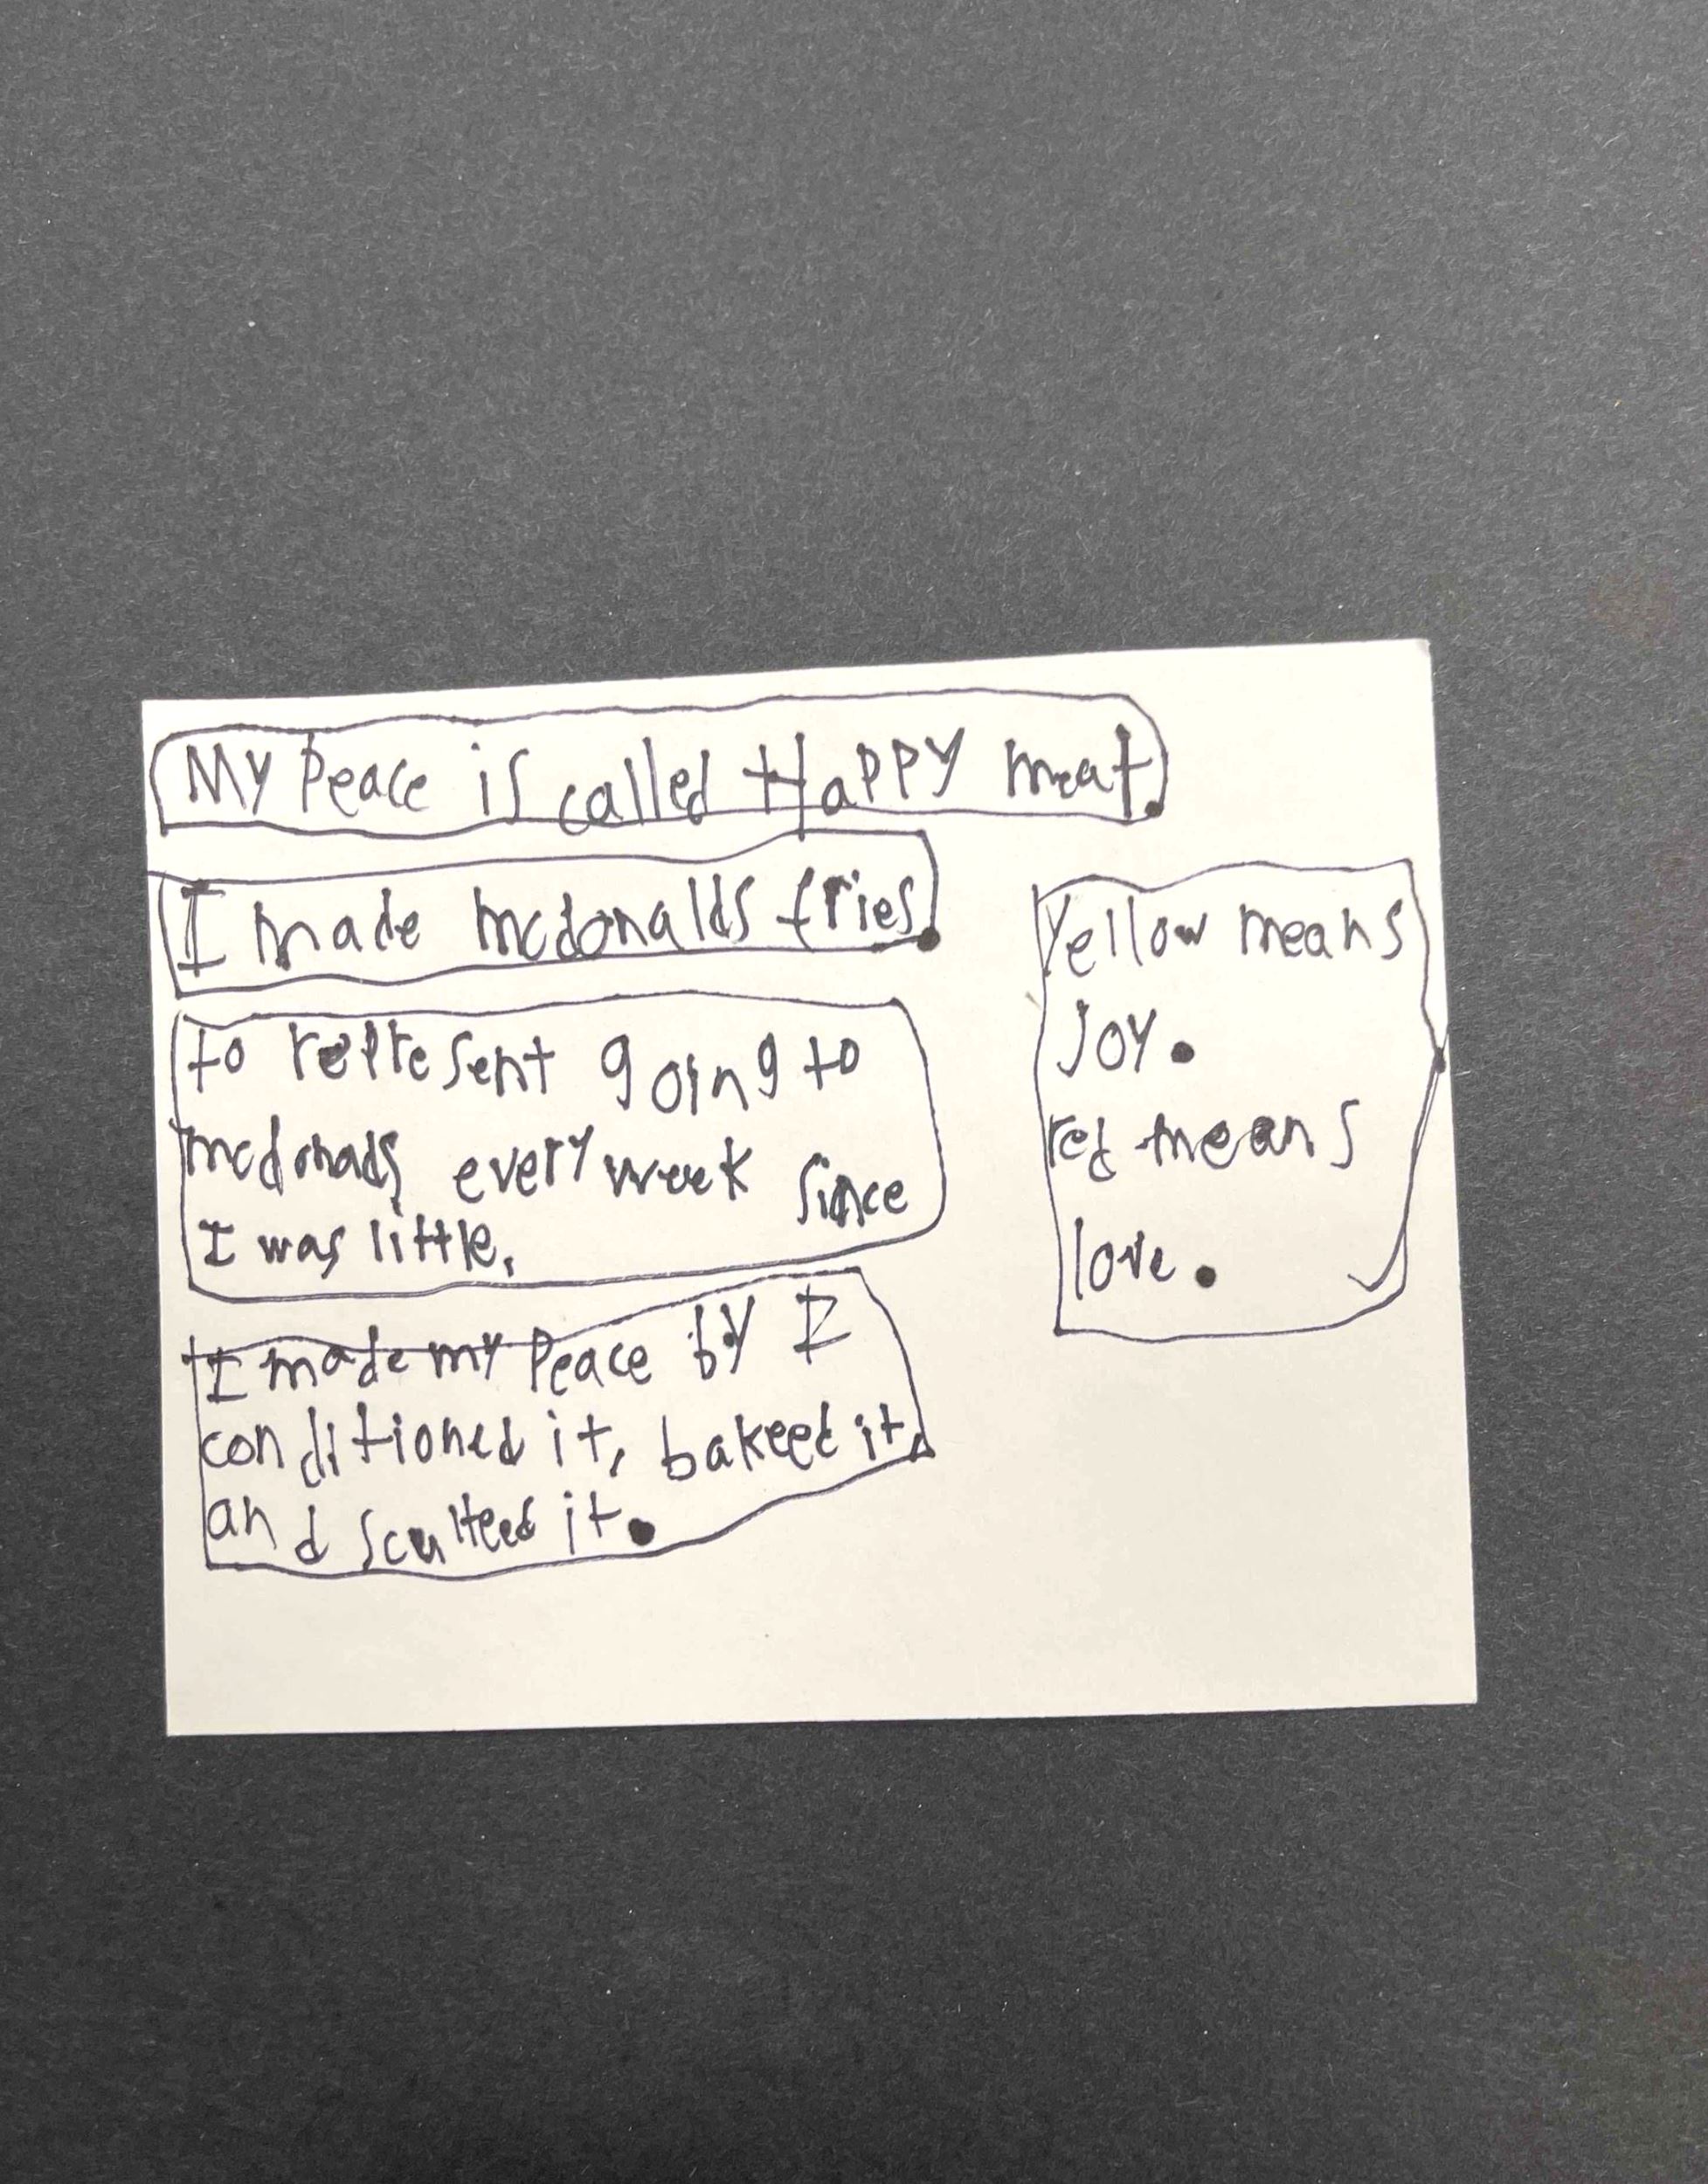 My Peace is called Happy meat.
I made mcdonalds fries.
to represent going to
mcdonads every week since
I was little.
I made my Peace by I
conditioned it, bakeed it,
and sculteed it.
Yellow means
Joy.
red means
love.